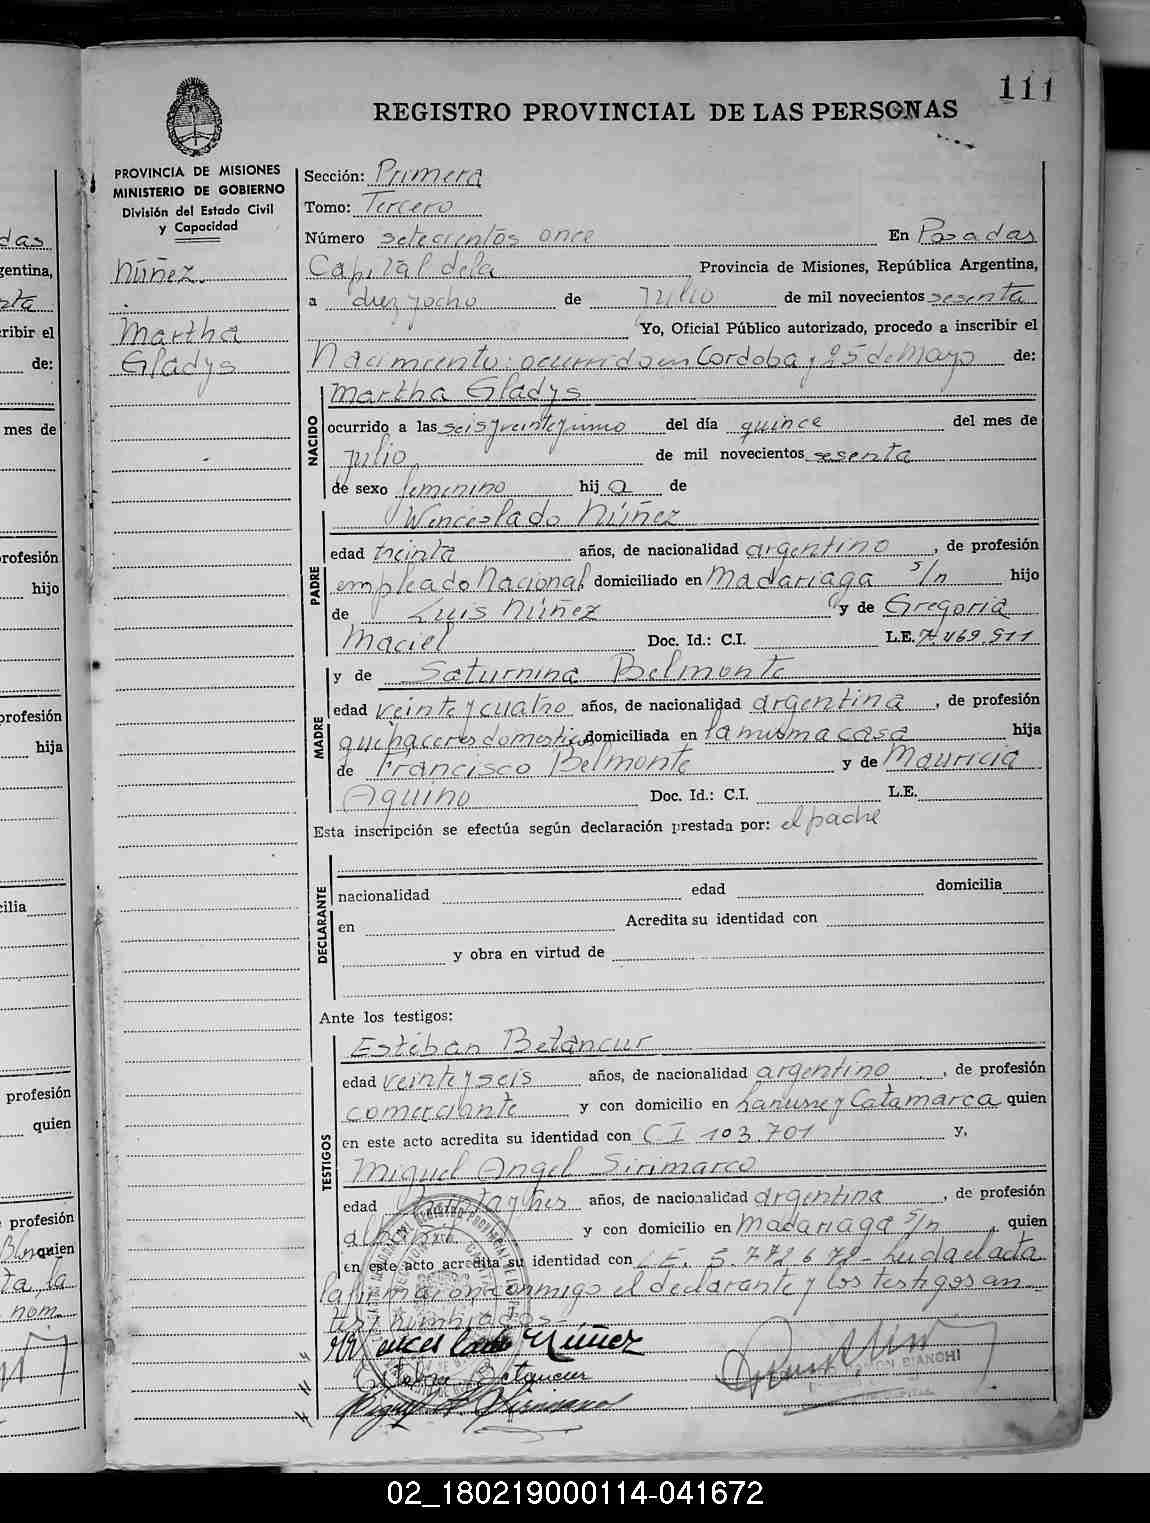 111
REGISTRO PROVINCIAL DE LAS PERSONAS
PROVINCIA DE MISIONES
MINISTERIO DE GOBIERNO
División del Estado Civil
y Capacidad
Núñez.
Martha
Gladys
Sección: Primera
Tomo: Tercero
Número setecientos once En Posadas
Capital de la Provincia de Misiones, República Argentina,
a diez y ocho de Julio de mil novecientos sesenta
Yo, Oficial Público autorizado, procedo a inscribir el
Nacimiento: ocurrido en Cordoba y 25 de Mayo de:
NACIDO
Martha Gladys
ocurrido a las seis y veinte y uno del día quince del mes de
Julio de mil novecientos sesenta
de sexo femenino hija de
PADRE
Wenceslado Núñez
edad treinta años, de nacionalidad argentino, de profesión
empleado Nacional domiciliado en Madariaga s/n hijo
de Luis Núñez y de Gregoria
Maciel Doc. Id.: C.I. L.E. 7.469.911
MADRE
y de Saturnina Belmonte
edad veinte y cuatro años, de nacionalidad argentina, de profesión
quehaceres domesticos domiciliada en la misma casa hija
de Francisco Belmonte y de Mauricia
Aquino Doc. Id.: C.I. L.E.
Esta inscripción se efectúa según declaración prestada por: el padre
DECLARANTE
nacionalidad edad domicilia
en Acredita su identidad con
y obra en virtud de
Ante los testigos:
TESTIGOS
Estéban Betancur
edad veinte y seis años, de nacionalidad argentino, de profesión
comerciante y con domicilio en Lanusse y Catamarca quien
en este acto acredita su identidad con C I 103.701 y,
Miguel Angel Sirimarco
edad treinta y tres años, de nacionalidad argentina, de profesión
y con domicilio en Madariaga s/n, quien
en este acto acredita su identidad con L.E. 5.772.672- Leida el acta
la firmaron conmigo el declarante y los testigos an
tes nombrados-
Wenceslado Núñez
Esteban Betancur
BIANCHI
das
gentina,
ribir el
de:
mes de
rofesión
hijo
profesión
hija
cilia
profesión
quien
profesión
quien
ta, la
nom
02_180219000114-041672